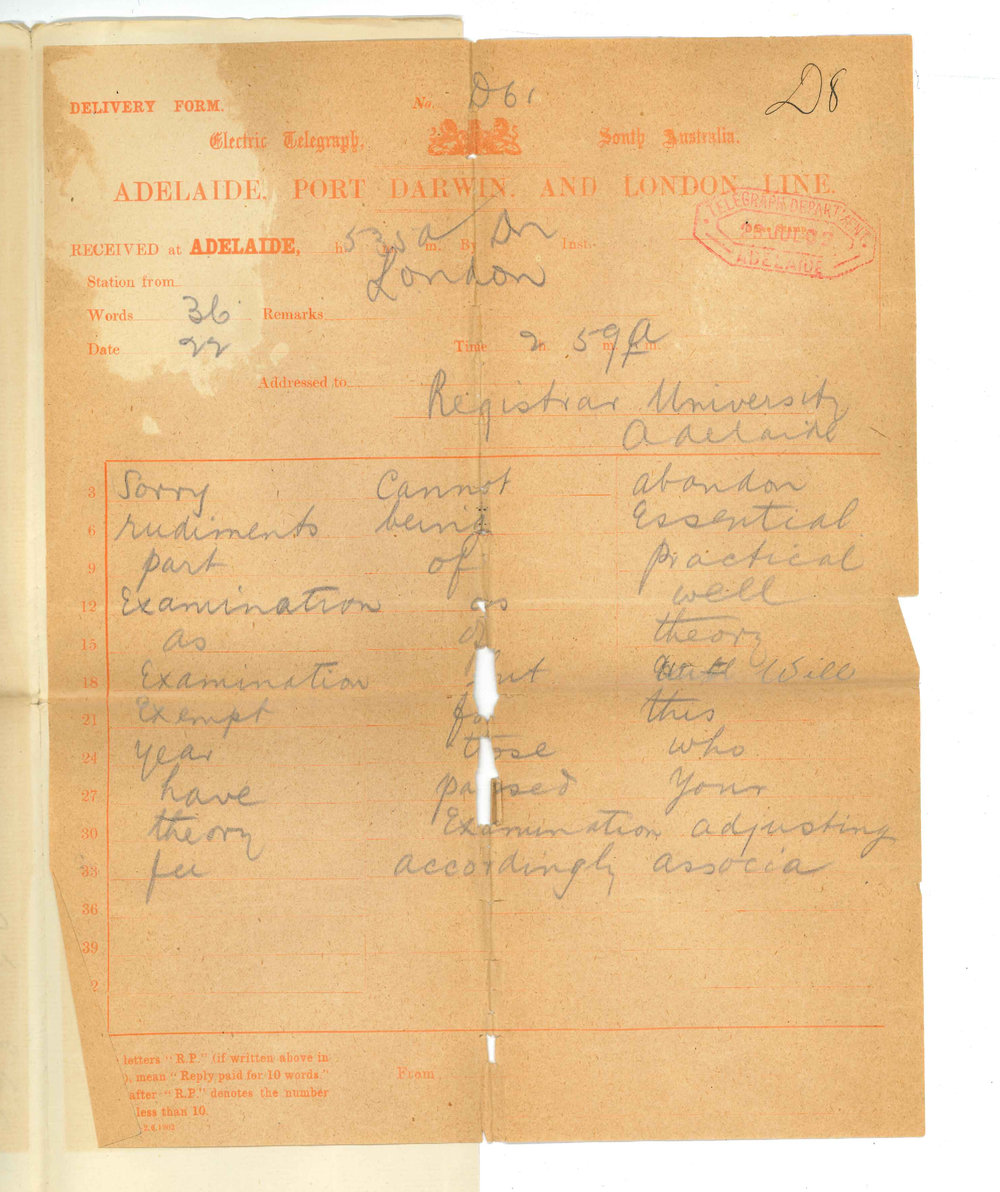 D8
DELIVERY FORM. No. D61
Electric Telegraph, South Australia.
ADELAIDE, PORT DARWIN, AND LONDON LINE.
TELEGRAPH DEPARTMENT
ADELAIDE
RECEIVED at ADELAIDE, h. 535a m. By Dn Inst.
Station from London
Words 36 Remarks
Date 22 Time 2 h. 59 m. a m.
Addressed to
Registrar University
Adelaide
3 Sorry Cannot abandon
6 rudiments being Essential
9 part of practical
12 Examination as well
15 as of theory
18 Examination but will
21 Exempt for this
24 year those who
27 have passed your
30 theory Examination adjusting
33 fee accordingly associa
36
39
2
letters "R.P." (if written above in
), mean "Reply paid for 10 words."
after "R.P." denotes the number
less than 10.
2.6.1902
From